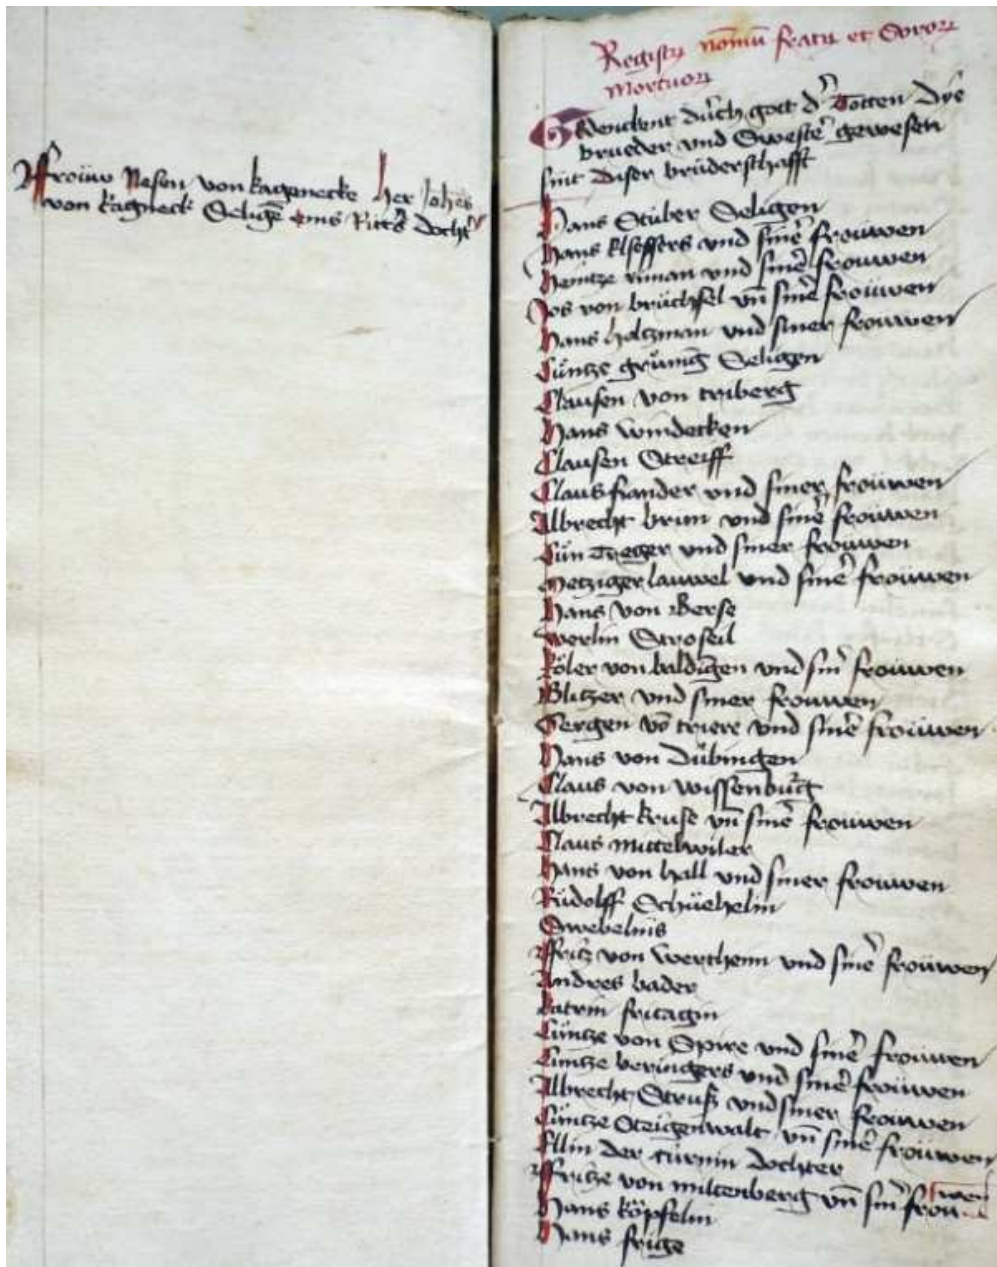 Ffroüw Nesen von kagenecke her Johēs
von kagneck Seligē eins Ritt's docht'
Regist₂ nōmū fratrū et Soror₂
Mortuor₂
Gedenckent durch gott d' Totten Die
brueder vnd Sweste' gewesen
sint diser brüderschafft
Hans Stüber Seligen
Hans und sine' frouwen
Heintze vnd sine' frouwen
Jos von brüchsel vn̄ sine' froüwen
Hans holtzman vnd siner frouwen
Cůntze Seligen
Clausen von triberg
Hans windecken
Clausen Streiff
Claus vnd siner froüwen
Albrecht brun vnd sine' froüwen
Cůn vnd siner frouwen
metziger lauwel vnd sine' froüwen
Hans von Berse
werlin Stroseil
Köler von baldigē̄n vnd sin' froüwen
Blitzer vnd siner frouwen
Gergen vō triere vnd sine' froüwen
Hans von Dübingen
Claus von wissenburg
Albrecht kruse vn̄ sine' frouwen
Claus mittelwiler
Hans von hall vnd siner frouwen
Růdolff Schüehelin
Swebelins
Ffritz von wertheim vnd sine' froüwen
Andres bader
katrin fritagin
Cüntze von Spire vnd sine' froüwen
Cuntze beringers vnd sine' froüwen
Albrecht Struß vnd siner frouwen
Cüntze Steigenwalt vn̄ sine' froüwen
Ellin der türnin dochter
Ffritze von miltenberg vn̄ sin' frouwen
Hans köpfelin
Hans frige